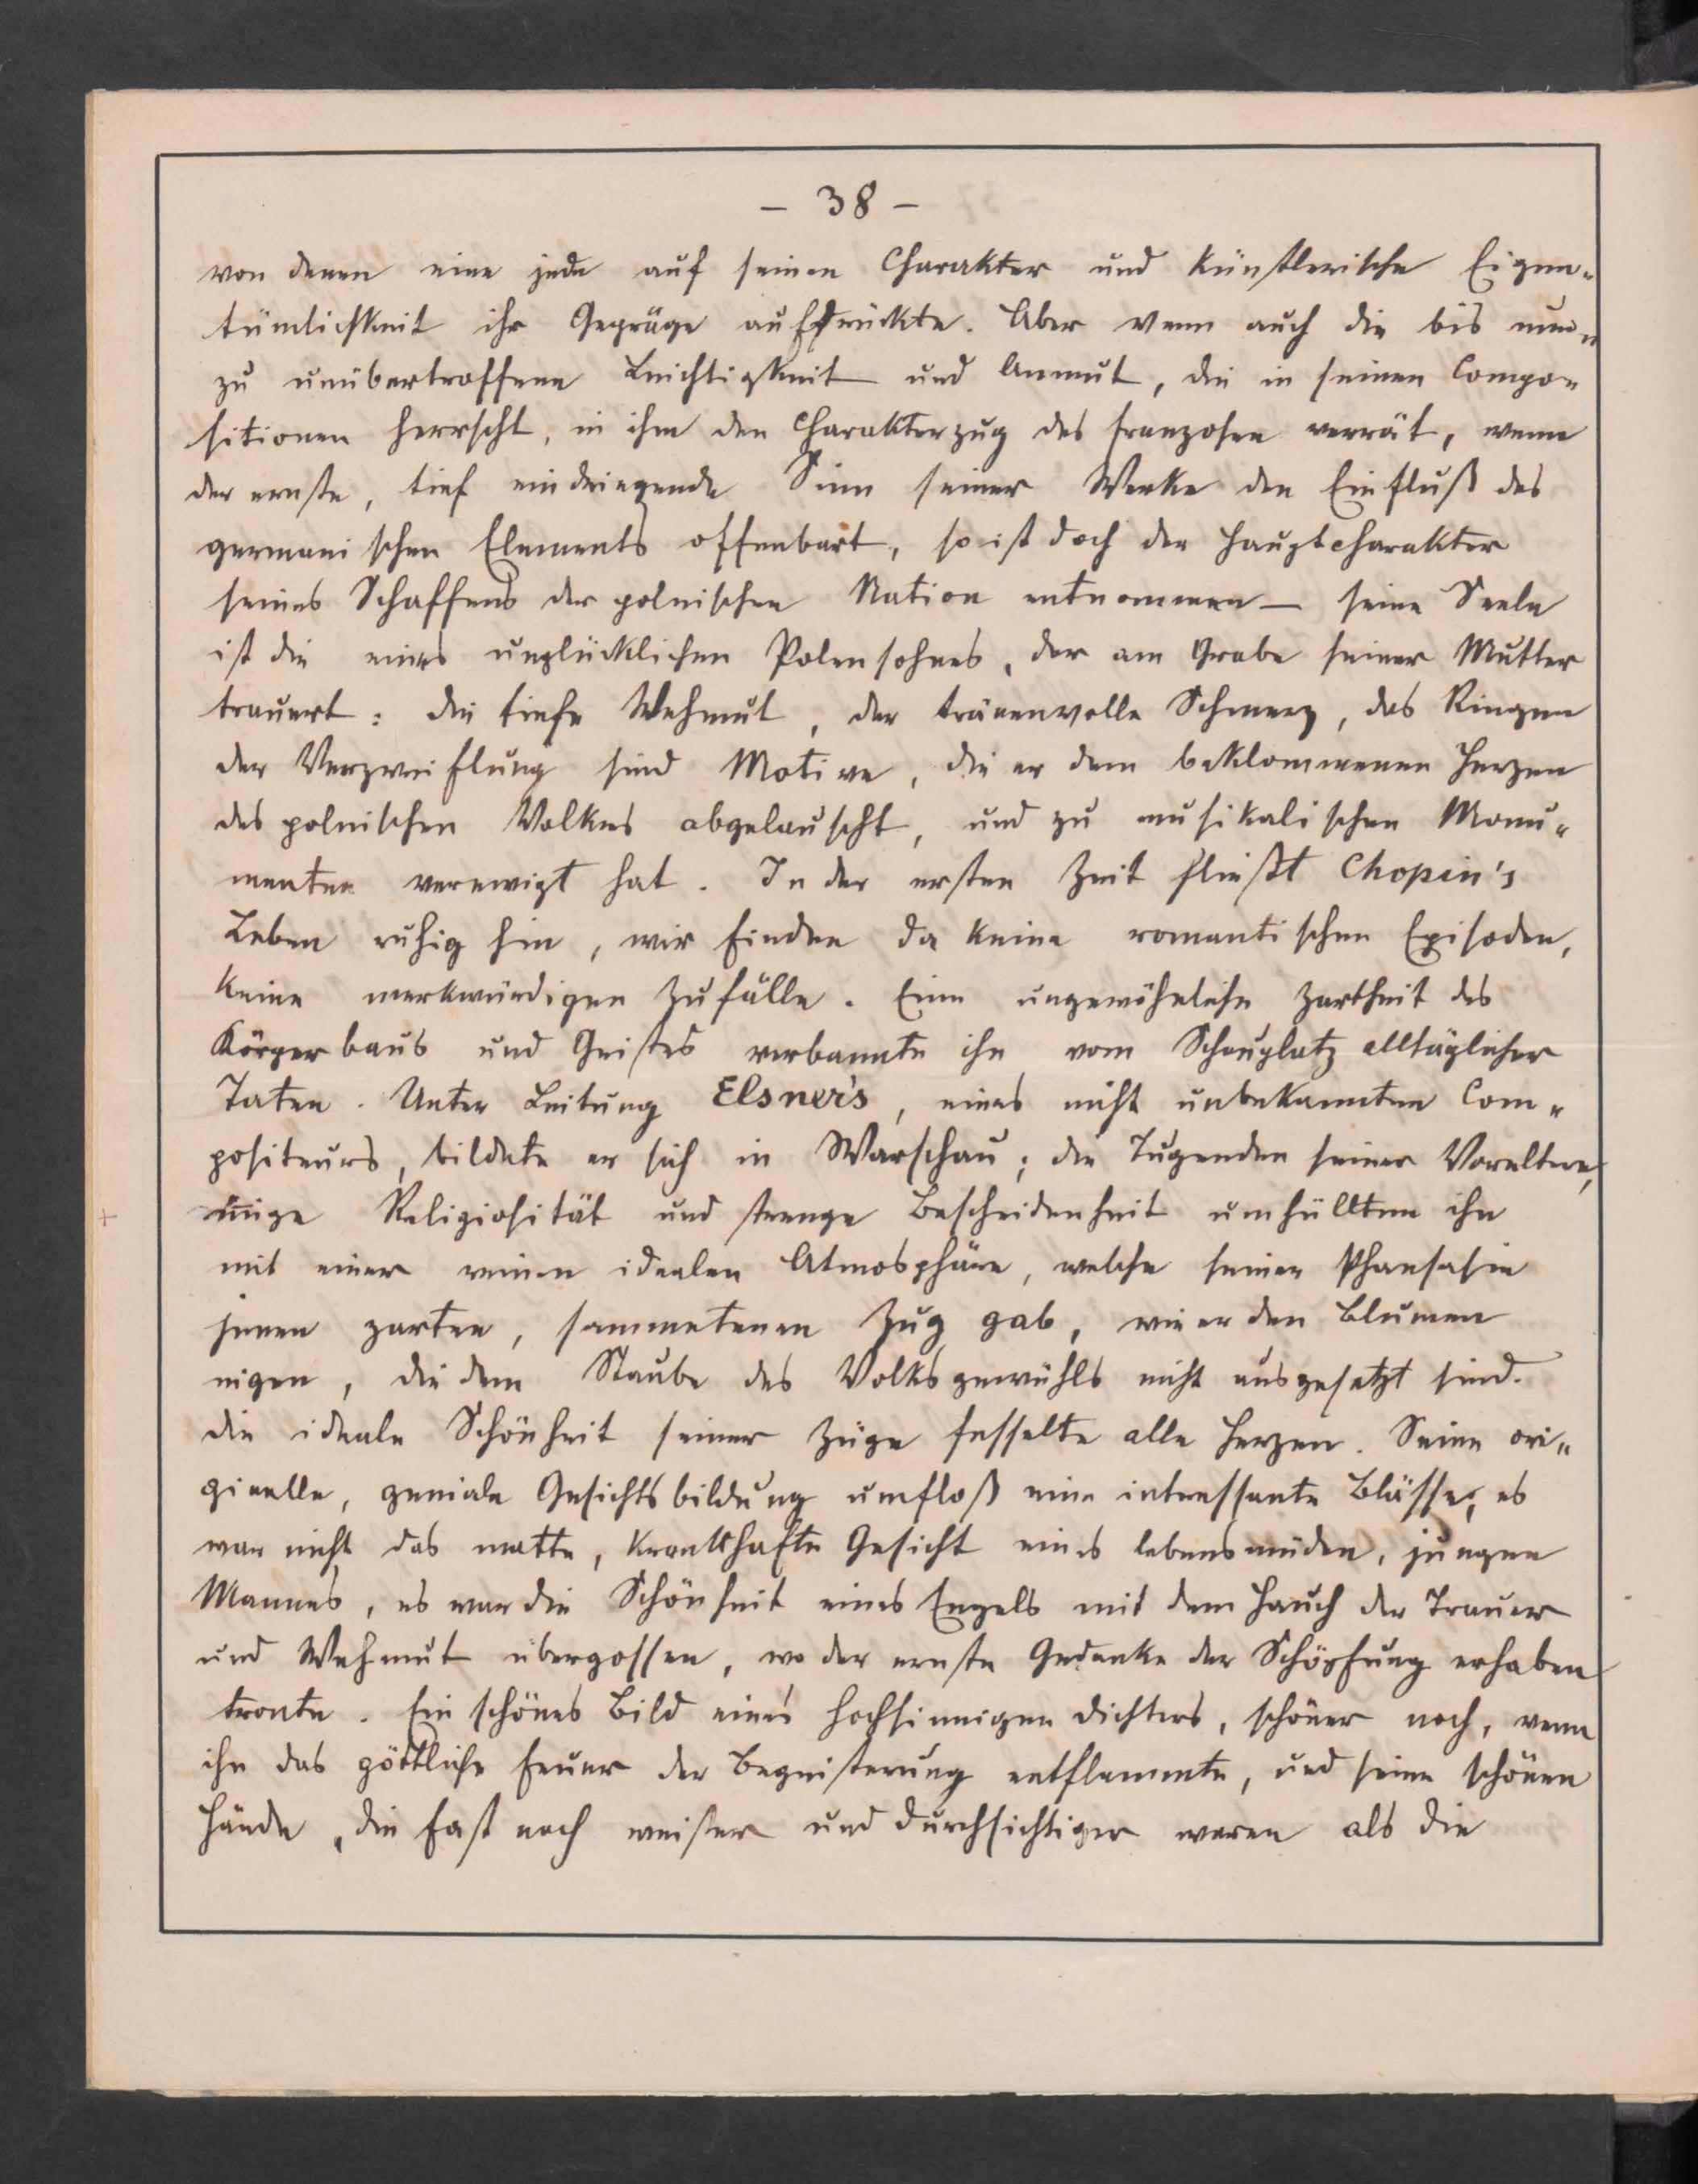 – 38 –
von denen eine jede auf seinen Charakter und künstlerische Eigen-
tümlichkeit ihr Gepräge aufdrückte. Aber wenn auch die bis nun-
zu unübertroffene Leichtigkeit und Anmut, die in seinen Compo-
sitionen herrscht, in ihm den Charakterzug des Franzosen verrät, wenn
der ernste, tief eindringende Sinn seiner Werke den Einfluß des
germanischen Elements offenbart, so ist doch der Hauptcharakter
seines Schaffens der polnischen Nation entnommen — seine Seele
ist die eines unglücklichen Polensohnes, der am Grabe seiner Mutter
trauert: die tiefe Wehmut, der tränenvolle Schmerz, das Ringen
der Verzweiflung sind Motive, die er dem beklommenen Herzen
des polnischen Volkes abgelauscht, und zu musikalischen Monu-
menten verewigt hat. In der ersten Zeit fließt Chopin's
Leben ruhig hin, wir finden da keine romantischen Episoden,
keine merkwürdigen Zufälle. Eine ungewöhnliche Zartheit des
Körperbaus und Geistes verbannte ihn vom Schauplatz alltäglicher
Taten. Unter Leitung Elsner's, eines nicht unbekannten Com-
positeurs, bildete er sich in Warschau; die Tugenden seiner Voreltern,
innige Religiosität und strenge Bescheidenheit umhüllten ihn
mit einer reinen idealen Atmosphäre, welche seiner Phansasie
jenen zarten, sammetenen Zug gab, wie er den Blumen
eigen, die dem Staube des Volksgewühls nicht ausgesetzt sind.
Die ideale Schönheit seiner Züge fesselte alle Herzen. Seine ori-
ginelle, geniale Gesichtsbildung umfloß eine interessante Blässe; es
war nicht das matte, krankhafte Gesicht eines lebensmüden, jungen
Mannes, es war die Schönheit eines Engels mit dem Hauch der Trauer
und Wehmut übergossen, wo der ernste Gedanke der Schöpfung erhaben
tronte. Ein schönes Bild eines hochsinnigen Dichters, schöner noch, wenn
ihn das göttliche Feuer der Begeisterung entflammte, und seine schönen
Hände, die fast noch weißer und durchsichtiger waren als die